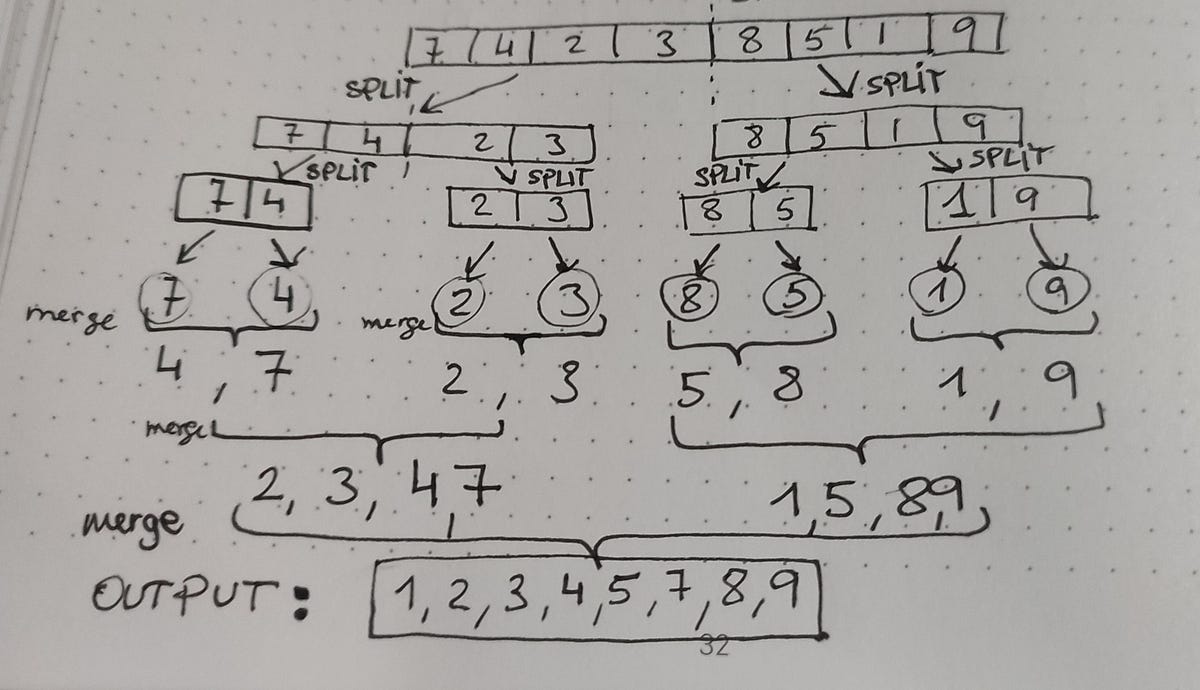 7 4 2 3 8 5 1 9
SPLIT SPLIT
7 4 2 3 8 5 1 9
SPLIT SPLIT SPLIT SPLIT
7 4 2 3 8 5 1 9
7 4 2 3 8 5 1 9
merge merge
4, 7 2, 3 5, 8 1, 9
merge
2, 3, 4, 7 1, 5, 8, 9
merge
OUTPUT: 1, 2, 3, 4, 5, 7, 8, 9
32